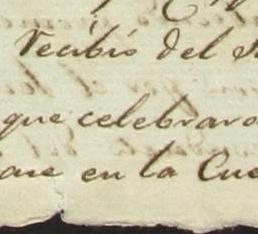 recibió del
que celebraro
en la Cue